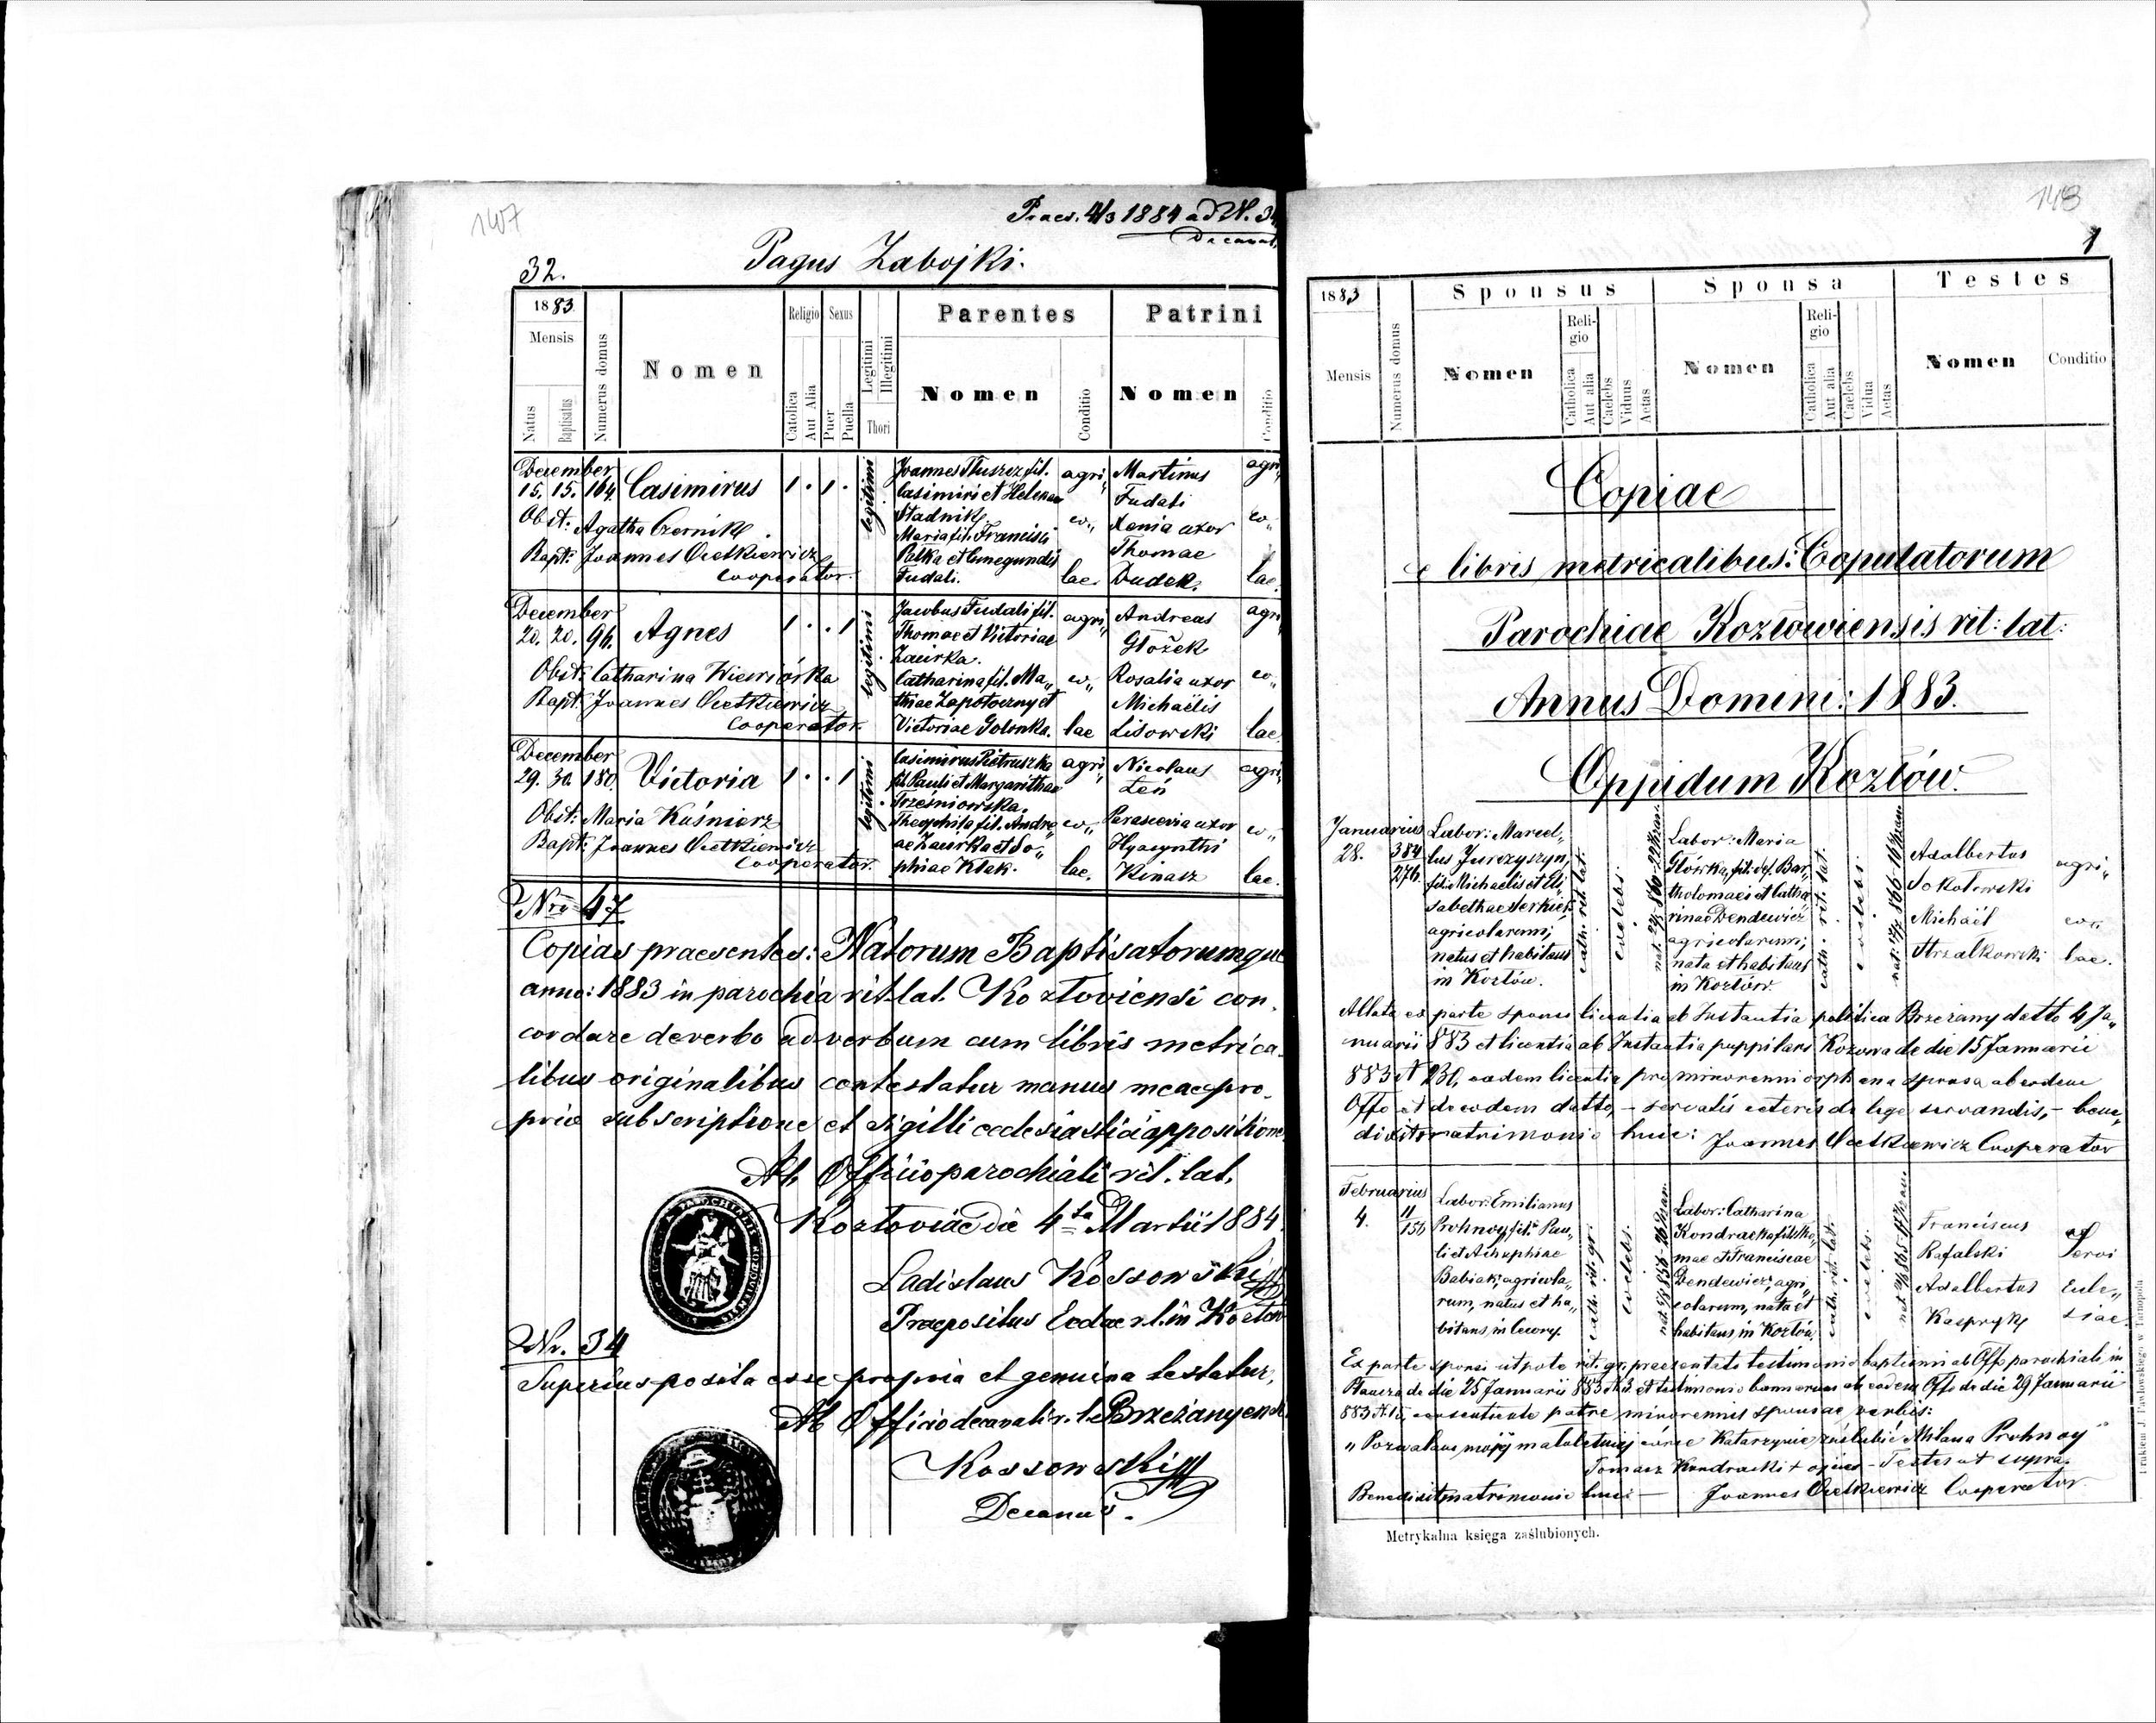 147
Praes. 4/3 1884 ad N. 34
Decanat.
Pagus Zabojki.
32.
1883.
Mensis
Natus
Baptisatus
Numerus domus
Nomen
Religio
Catolica
Aut Alia
Sexus
Puer
Puella
Legitimi
Illegitimi
Thori
Parentes
Nomen
Conditio
Patrini
Nomen
Conditio
December
15. 15. 164. Casimirus 1 . 1 .
legitimi
Obst: Agatha Czernik
Bapt: Joannes Cietkiewicz
Cooperator.
Joannes Tłuszcz fil.
Casimiri et Helenae
Stadnik
Maria fil. Francisci
Pałka et Cunegundis
Fudali.
agri„
co„
lae.
Martinus
Fudali
Xenia uxor
Thomae
Dudek.
agri„
co„
lae.
December
20. 20. 94. Agnes 1 . . 1
legitimi
Obst: Catharina Wiewiórka
Bapt: Joannes Cietkiewicz
Cooperator.
Jacobus Fudali fil.
Thomae et Victoriae
Zaurka.
Catharina fil. Ma„
thiae Zapotoczny et
Victoriae Golonka.
agri„
co„
lae
Andreas
Głożek
Rosalia uxor
Michaëlis
Lisowski
agri
co„
lae.
December
29. 30. 180. Victoria 1 . . 1
legitimi
Obst: Maria Kuśnierz
Bapt: Joannes Cietkiewicz
Cooperator.
Casimirus Pietruszka
fil. Pauli et Margarithae
Trześniowska.
Theophila fil. Andre
ae Zaurka et So„
phiae Kłak.
agri„
co„
lae.
Nicolaus
Leń
Parascevia uxor
Hyacynthi
Kinasz
agri„
co„
lae.
Nro 47
Copias praesentes: Natorum Baptisatorumque
anno: 1883 in parochia rit. lat. Kozłoviensi con„
cordare de verbo ad verbum cum libris metrica„
libus originalibus contestatur manus meae pro„
pria subscriptione et sigilli ecclesiastici appositione
Ab Officio parochiali rit. lat.
Kozłoviae die 4ta Martii 1884.
Ladislaus Kossowski
Praepositus Ecclae r. l. in Kozłow
Nr. 34
Superius posita esse propria et genuina testatur,
Ab Officio decanali r. l. Brzeżanyensi
Kossowski
Decanus.
148
1
1883
Mensis
Numerus domus
Sponsus
Nomen
Religio
Catholica
Aut alia
Caelebs
Viduus
Aetas
Sponsa
Nomen
Religio
Catholica
Aut alia
Caelebs
Vidua
Aetas
Testes
Nomen
Conditio
Copiae
e libris metricalibus: Copulatorum
Parochiae Kozłowiensis rit: lat:
Annus Domini: 1883.
Oppidum Kozłów.
Januarius
28.
384
276
Labor: Marcel„
lus Jurczyszyn,
fil: Michaelis et Eli
sabethae Serkies
agricolarum;
natus et habitans
in Kozłów.
cath. rit. lat.
coelebs.
Labor: Maria
Główka, fil: def. Bar„
tholomaei et Catha
rinae Dendewicz
agricolarum;
nata et habitans
in Kozłów.
cath. rit. lat.
coelebs.
Adalbertus
Sokołowski
Michaël
Strzałkowski
agri„
co„
lae.
Allata ex parte sponsi licentia ab Instantia politica Brzeżany datto 4 Ja„
nuarii 883 et licentia ab Instantia puppilari Kozowa de die 15 Januarii
883 N 230, eadem licentia pro minorenni orphana sponsa ab eodem
Offo et de eodem datto, - servatis ceteris de lege servandis, - bene„
dixit matrimonio huic: Joannes Cietkiewicz Cooperator
Februarius
4.
11
156
Labor: Emilianus
Prohnoy, fil: Pau„
li et
Babiak, agricola„
rum, natus et ha„
bitans in
cath. rit. gr.
coelebs.
Labor: Catharina
Kondracka fil: Tho„
mae et Franciscae
Dendewicz, agri„
colarum, nata et
habitans in Kozłów.
cath. rit. lat.
coelebs.
Franciscus
Rafalski
Adalbertus
Kasprzyk
et
Servi
Eccle„
siae
Ex parte sponsi utpote rit. gr. praesentato testimonio baptismi ab Offo parochiali in
de die 25 Januarii 883 et testimonio bannorum ab eodem Offo de die 29 Januarii
883 N. 15, consentiente patre minorennis sponsae verbis:
„Pozwalam mojéj małoletniej córce Katarzynie zaślubić Milana Prohnoy"
Tomasz Kondracki + ojciec - Testes ut supra.
Benedixit matrimonio huic - Joannes Cietkiewicz Cooperator
Metrykalna księga zaślubionych.
Drukiem J. Pawłowskiego w Tarnopolu